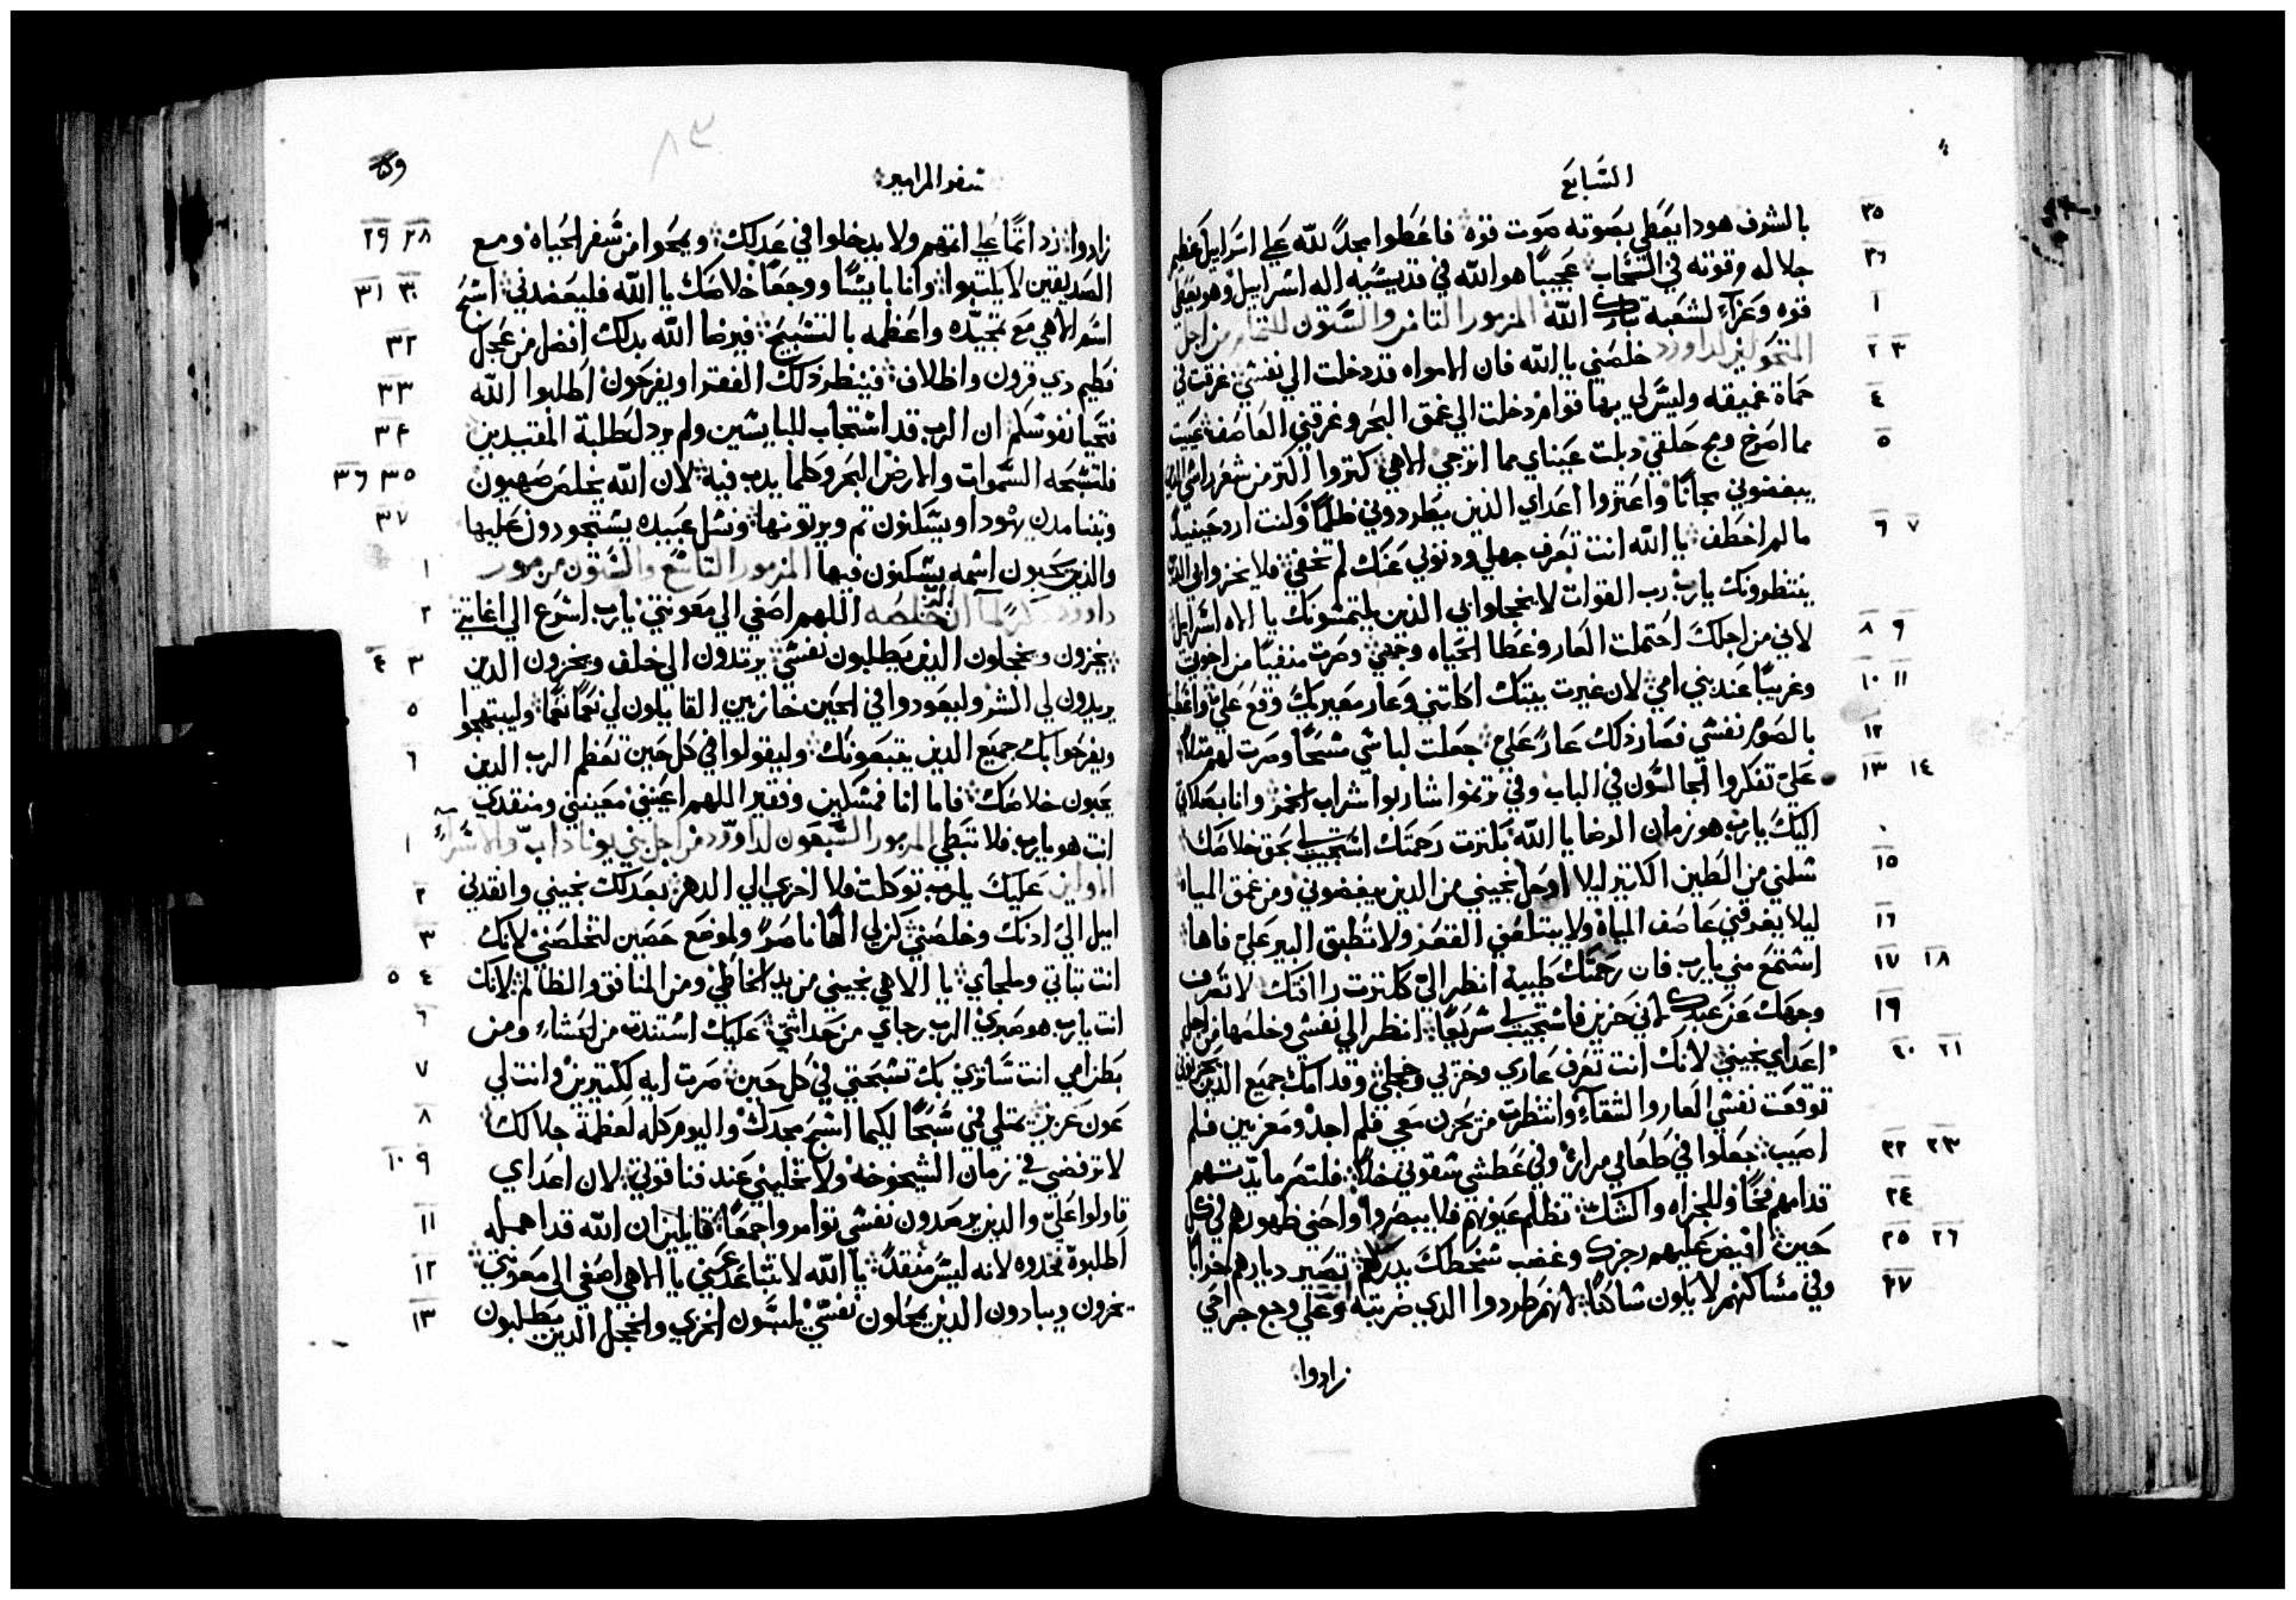 السابع
بالشرف هودا يعطي بصوته صوت قوه فاعطوا مجداً لله علي اسراييل عظيم
جلاله وقوته في السحاب عجيباً هو الله في قديسيه اله اسراييل وهو يعطي
قوه وعزاء لشعبه تبارك الله المزمور الثامن والستون للتمام من اجل
خلصني يا الله فان الامواه قد دخلت الي نفسي غرقت في
حماة عميقه وليس لي بها قوام دخلت الي عمق البحر وغرقني العاصف تعبت
مما اصرخ وبح حلقي دبلت عيناي مما اترجي الاهي كتروا اكتر من شعر راسي
يبغضوني مجاناً واعتزوا اعداي الذين يطردوني ظلماً وكنت ارد حينيد
ما لم اخطف يا الله انت تعرف جهلي ودنوبي عنك لم تخفي فلا يخزوا بي
ينتظرونك يارب رب القوات لا يخجلوا بي الذين يلتمسونك يا اله اسراييل
لاني من اجلك احتملت العار وغطا الحياه وجهي وصرت منفياً من اخوتي
وغريباً عند بني امي لان غيرت بيتك اكلتني وعار معيريك وقع علي
بالصوم نفسي فصار ذلك عارً علي جعلت لباسي مسحاً وصرت لهم مثلاً
علي تفكروا الجالسون في الباب وفي ترنموا شاربوا شراب الخمر وانا بصلاتي
اليك يارب هو زمان الرضا يا الله بكترت رحمتك استجيب لي بحق خلاصك
نسلني من الطين الكتير ليلا اوحل نجيني من الدين يبغضوني ومن عمق المياه
ليلا يغرقني عاصف المياه ولا يبتلعني القعر ولا تطبق البير علي فاها
استمع مني يارب فان رحمتك طيبه انظر الي ككترت رأافتك لا تصرف
وجهك عن عبدك اني حزين فاستجيب لي سريعاً انظر الي نفسي وخلصها من اجل
اعداي نجيني لانك انت تعرف عاري وخزيي وخجلي وقدامك جميع الذين
توقعت نفسي العار والشقاء وانتظرت من يحزن معي فلم اجد ومعزيين فلم
اصيب جعلوا في طعامي مرارة وفي عطشي سقوني خلاً فلتصر مايدتهم
قدامهم فخاً وللجزاه والشك تظلم عيونهم فلا يبصروا واحني ظهورهم في كل
حين افيض عليهم رجزك وغضب سخطك يدركهم تصير ديارهم خراباً
وفي مساكنهم لا يكون ساكناً لانهم طردوا الدي ضربته وعلي وجع جراحي
زادوا
سفر المزامير
زادوا زد اثماً علي اثمهم ولا يدخلوا في عدلك ويمحوا من سفر الحياه ومع
الصديقين لا يكتبوا وانا بايساً ووجعاً خلاصك يا الله فليعضدني اسبح
اسم الاهي مع تمجيده واعظمه بالتسبيح فيرضا الله بدلك افضل من عجل
فطيم دي قرون واظلاف فينظر ذلك الفقرا ويفرحون اطلبوا الله
فتحيا نفوسكم ان الرب قد استجاب للبايسين ولم يردل طلبة المقتيدين
فلتسبحه السموات والارض البحر وكلما يدب فيه لان الله يخلص صهيون
وتبنا مدن يهودا ويسكنون تم ويرتونها ونسل عبيده يستحودون عليها
والذين يحبون اسمه يسكنون فيها المزمور التاسع والستون من مور
اللهم اصغي الي معونتي يارب اسرع الي اغاتتي
يخزون ويخجلون الذين يطلبون نفسي يرتدون الي خلف ويخزون الدين
يريدون لي الشر وليعودوا في الحين خازيين القايلون لي نعماً نعماً وليبتهجوا
ويفرحوا بك جميع الدين يتبعونك وليقولوا في كل حين تعظم الرب الدين
يحبون خلاصك فاما انا فمسكين وفقير اللهم اعيني معيني ومنقدي
انت هو يارب فلا تبطي المزمور السبعون لداوود من اجل بني يوناداب
عليك يارب توكلت فلا اخزي الي الدهر بعدلك نجيني وانقدني
اميل الي ادنك وخلصني كن لي الاهاً ناصراً ولموضع حصين لتخلصني لانك
انت تباتي وملجاي يا الاهي نجيني من يد الخاطي ومن المنافق والظالم لانك
انت يارب هو صبري الرب رجاي من حداثتي عليك استندت من الحشاء ومن
بطن امي انت ساتري بك تسبحتي في كل حين صرت ايه لكتيرين وانت لي
عون عزيز يمتلي فمي سبحاً لكيما اسبح مجدك واليوم كله لعظمة جلالك
لا ترفضني في زمان الشيخوخه ولا تخليني عند فنا قوتي لان اعداي
قاولوا علي والدين يرصدون نفسي توامروا جمعاً قايلين ان الله قد اهمله
اطلبوه تجدوه لانه ليس منقدً يا الله لا تتباعد عني يا الاهي اصغي الي معونتي
يخزون ويبادون الدين يمحلون نفسي يلبسون الخزي والخجل الدين يطلبون